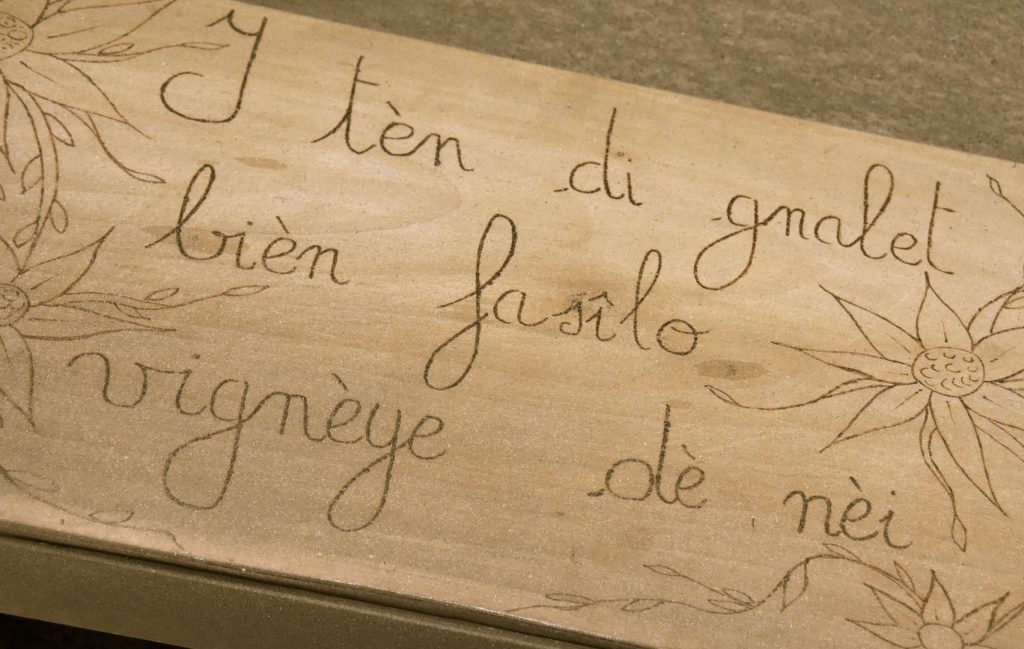 I tèn di gnalet
bièn fasîlo
vignèye dè nèi